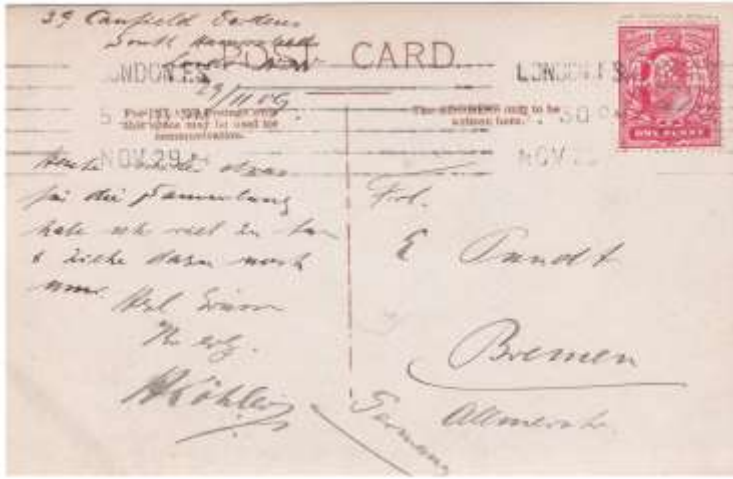 39 Canfield Gardens
South Hampstead
POST CARD
LONDON F.S.
LONDON F.S.
29/11 09.
5
30
this space may be used for
communication.
The address only to be
written here.
NOV 29
NOV
ONE PENNY
Heute wieder etwas
für die Sammlung
habe sehr viel zu tun
& ziehe dazu noch
um.
Herzl Grüsse
Ihr erg.
HKöhler
Frl.
E Pundt
Bremen
Allmersstr.
Germany